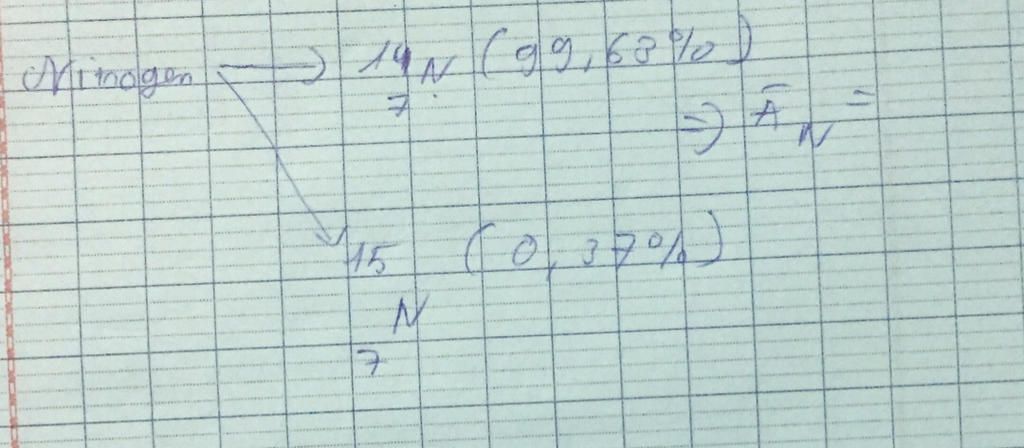 Nitrogen → 14 7 N (99,63%)
⇒ Ā N =
15 7 N (0,37%)